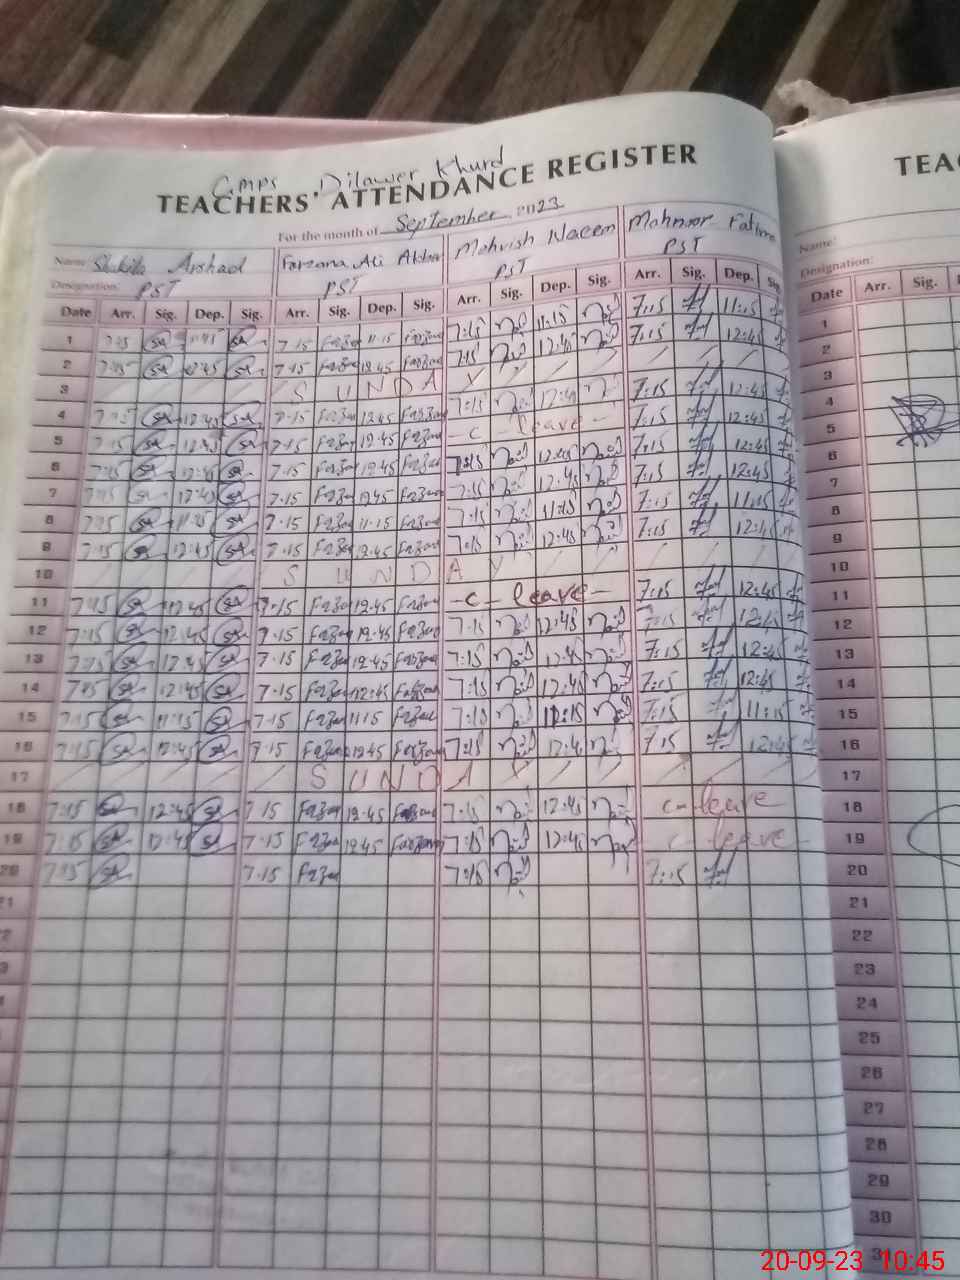 GMPS Dilawer Khurd
TEACHERS' ATTENDANCE REGISTER
For the month of September 2023
Name: Shakila Arshad Farzana Ali Akbar Mehvish Naeem Mahnoor Fatima
Designation: PST PST PST PST
Date Arr. Sig. Dep. Sig. Arr. Sig. Dep. Sig. Arr. Sig. Dep. Sig. Arr. Sig. Dep. Sig.
1 7:15 SA 11:15 SA 7.15 Farzan 11.15 Farzan 7:15 11:15 7:15 11:15
2 7:15 SA 12:45 SA 7.15 Farzan 12.45 Farzan 7:15 12:45 7:15 12:45
3 SUNDAY
4 7:15 SA 12:45 SA 7.15 Farzan 12.45 Farzan 7:15 12:45 7:15 12:45
5 7:15 SA 12:45 SA 7.15 Farzan 12.45 Farzan - c - leave - 7:15 12:45
6 7:15 SA 12:45 SA 7.15 Farzan 12.45 Farzan 7:15 12:45 7:15 12:45
7 7:15 SA 12:45 SA 7.15 Farzan 12.45 Farzan 7:15 12:45 7:15 12:45
8 7:15 SA 11:15 SA 7.15 Farzan 11.15 Farzan 7:15 11:15 7:15 11:15
9 7:15 SA 12:45 SA 7.15 Farzan 12.45 Farzan 7:15 12:45 7:15 12:45
10 SUNDAY
11 7:15 SA 12:45 SA 7.15 Farzan 12.45 Farzan - c - leave - 7:15 12:45
12 7:15 SA 12:45 SA 7.15 Farzan 12.45 Farzan 7:15 12:45 7:15 12:45
13 7:15 SA 12:45 SA 7.15 Farzan 12.45 Farzan 7:15 12:45 7:15 12:45
14 7:15 SA 12:45 SA 7.15 Farzan 12:45 Farzan 7:15 12:45 7:15 12:45
15 7:15 SA 11:15 SA 7.15 Farzan 11.15 Farzan 7:15 11:15 7:15 11:15
16 7:15 SA 12:45 SA 7.15 Farzan 12.45 Farzan 7:15 12:4 7:15 12:45
17 SUNDAY
18 7:15 SA 12:45 SA 7.15 Farzan 12.45 Farzan 7:15 12:45 c - leave
19 7:15 SA 12:45 SA 7.15 Farzan 12.45 Farzan 7:15 12:45 c - leave -
20 7:15 SA 7.15 Farzan 7:15 7:15
21
22
23
24
25
26
27
28
29
30
TEAC
Name:
Designation:
Date Arr. Sig.
1
2
3
4
5
6
7
8
9
10
11
12
13
14
15
16
17
18
19
20
21
22
23
24
25
26
27
28
29
30
20-09-23 10:45